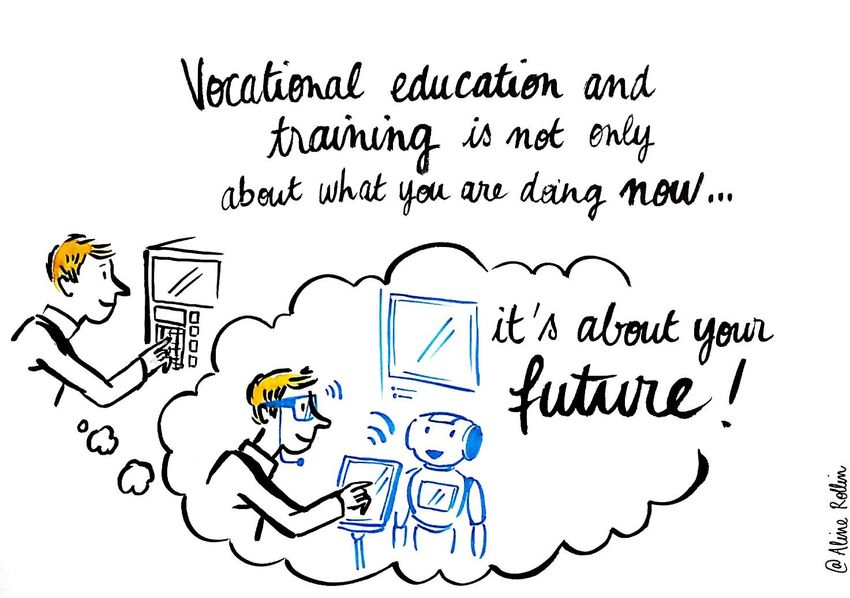 Vocational education and
training is not only
about what you are doing now...
it's about your
future!
@Aline Rollin